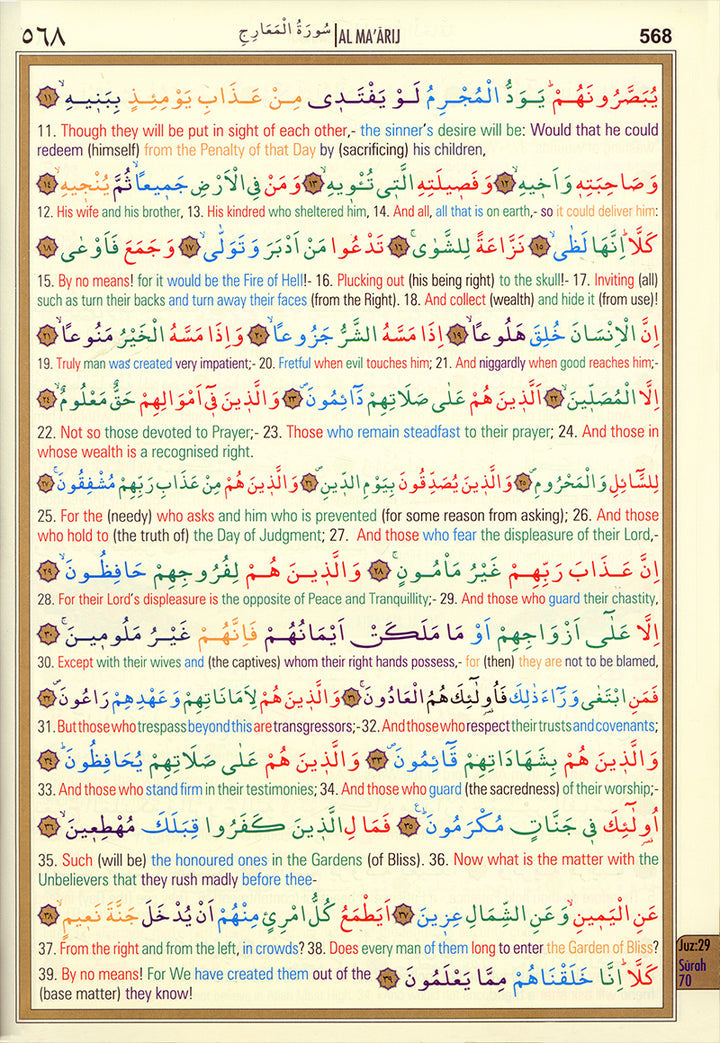 ٥٦٨ سُورَةُ الْمَعَارِجِ | AL MA'ĀRIJ 568
يُبَصَّرُونَهُمْ ۚ يَوَدُّ الْمُجْرِمُ لَوْ يَفْتَدِى مِنْ عَذَابِ يَوْمِئِذٍ بِبَنِيهِ ۙ ١١
11. Though they will be put in sight of each other,- the sinner's desire will be: Would that he could
redeem (himself) from the Penalty of that Day by (sacrificing) his children,
وَصَاحِبَتِهِ وَاَخِيهِ ۙ ١٢ وَفَصِيلَتِهِ الَّتِى تُـْٔوِيهِ ۙ ١٣ وَمَنْ فِى الْاَرْضِ جَمِيعاً ۙ ثُمَّ يُنْجِيهِ ۙ ١٤
12. His wife and his brother, 13. His kindred who sheltered him, 14. And all, all that is on earth,- so it could deliver him:
كَلَّا ۜ اِنَّهَا لَظٰى ۙ ١٥ نَزَّاعَةً لِلشَّوٰى ۚ ١٦ تَدْعُوا مَنْ اَدْبَرَ وَتَوَلّٰى ۙ ١٧ وَجَمَعَ فَاَوْعٰى ١٨
15. By no means! for it would be the Fire of Hell!- 16. Plucking out (his being right) to the skull!- 17. Inviting (all)
such as turn their backs and turn away their faces (from the Right). 18. And collect (wealth) and hide it (from use)!
اِنَّ الْاِنْسَانَ خُلِقَ هَلُوعاً ۙ ١٩ اِذَا مَسَّهُ الشَّرُّ جَزُوعاً ۙ ٢٠ وَاِذَا مَسَّهُ الْخَيْرُ مَنُوعاً ۙ ٢١
19. Truly man was created very impatient;- 20. Fretful when evil touches him; 21. And niggardly when good reaches him;-
اِلَّا الْمُصَلِّينَ ۙ ٢٢ اَلَّذِينَ هُمْ عَلٰى صَلَاتِهِمْ دَٓائِمُونَ ۖ ٢٣ وَالَّذِينَ فِٓى اَمْوَالِهِمْ حَقٌّ مَعْلُومٌ ۙ ٢٤
22. Not so those devoted to Prayer;- 23. Those who remain steadfast to their prayer; 24. And those in
whose wealth is a recognised right.
لِلسَّٓائِلِ وَالْمَحْرُومِ ۖ ٢٥ وَالَّذِينَ يُصَدِّقُونَ بِيَوْمِ الدِّينِ ۖ ٢٦ وَالَّذِينَ هُمْ مِنْ عَذَابِ رَبِّهِمْ مُشْفِقُونَ ۚ ٢٧
25. For the (needy) who asks and him who is prevented (for some reason from asking); 26. And those
who hold to (the truth of) the Day of Judgment; 27. And those who fear the displeasure of their Lord,-
اِنَّ عَذَابَ رَبِّهِمْ غَيْرُ مَاْمُونٍ ۚ ٢٨ وَالَّذِينَ هُمْ لِفُرُوجِهِمْ حَافِظُونَ ۙ ٢٩
28. For their Lord's displeasure is the opposite of Peace and Tranquillity;- 29. And those who guard their chastity,
اِلَّا عَلٰٓى اَزْوَاجِهِمْ اَوْ مَا مَلَكَتْ اَيْمَانُهُمْ فَاِنَّهُمْ غَيْرُ مَلُومِينَ ۚ ٣٠
30. Except with their wives and (the captives) whom their right hands possess,- for (then) they are not to be blamed,
فَمَنِ ابْتَغٰى وَرَٓاءَ ذٰلِكَ فَاُولٰٓئِكَ هُمُ الْعَادُونَ ۚ ٣١ وَالَّذِينَ هُمْ لِاَمَانَاتِهِمْ وَعَهْدِهِمْ رَاعُونَ ۖ ٣٢
31. But those who trespass beyond this are transgressors;- 32. And those who respect their trusts and covenants;
وَالَّذِينَ هُمْ بِشَهَادَاتِهِمْ قَٓائِمُونَ ۖ ٣٣ وَالَّذِينَ هُمْ عَلٰى صَلَاتِهِمْ يُحَافِظُونَ ۜ ٣٤
33. And those who stand firm in their testimonies; 34. And those who guard (the sacredness) of their worship;-
اُولٰٓئِكَ فِى جَنَّاتٍ مُكْرَمُونَ ۜ ٣٥ فَمَالِ الَّذِينَ كَفَرُوا قِبَلَكَ مُهْطِعِينَ ۙ ٣٦
35. Such (will be) the honoured ones in the Gardens (of Bliss). 36. Now what is the matter with the
Unbelievers that they rush madly before thee-
عَنِ الْيَمِينِ وَعَنِ الشِّمَالِ عِزِينَ ٣٧ اَيَطْمَعُ كُلُّ امْرِئٍ مِنْهُمْ اَنْ يُدْخَلَ جَنَّةَ نَعِيمٍ ۙ ٣٨
37. From the right and from the left, in crowds? 38. Does every man of them long to enter the Garden of Bliss?
كَلَّا ۜ اِنَّا خَلَقْنَاهُمْ مِمَّا يَعْلَمُونَ ٣٩
39. By no means! For We have created them out of the
(base matter) they know!
Juz:29
Sûrah
70